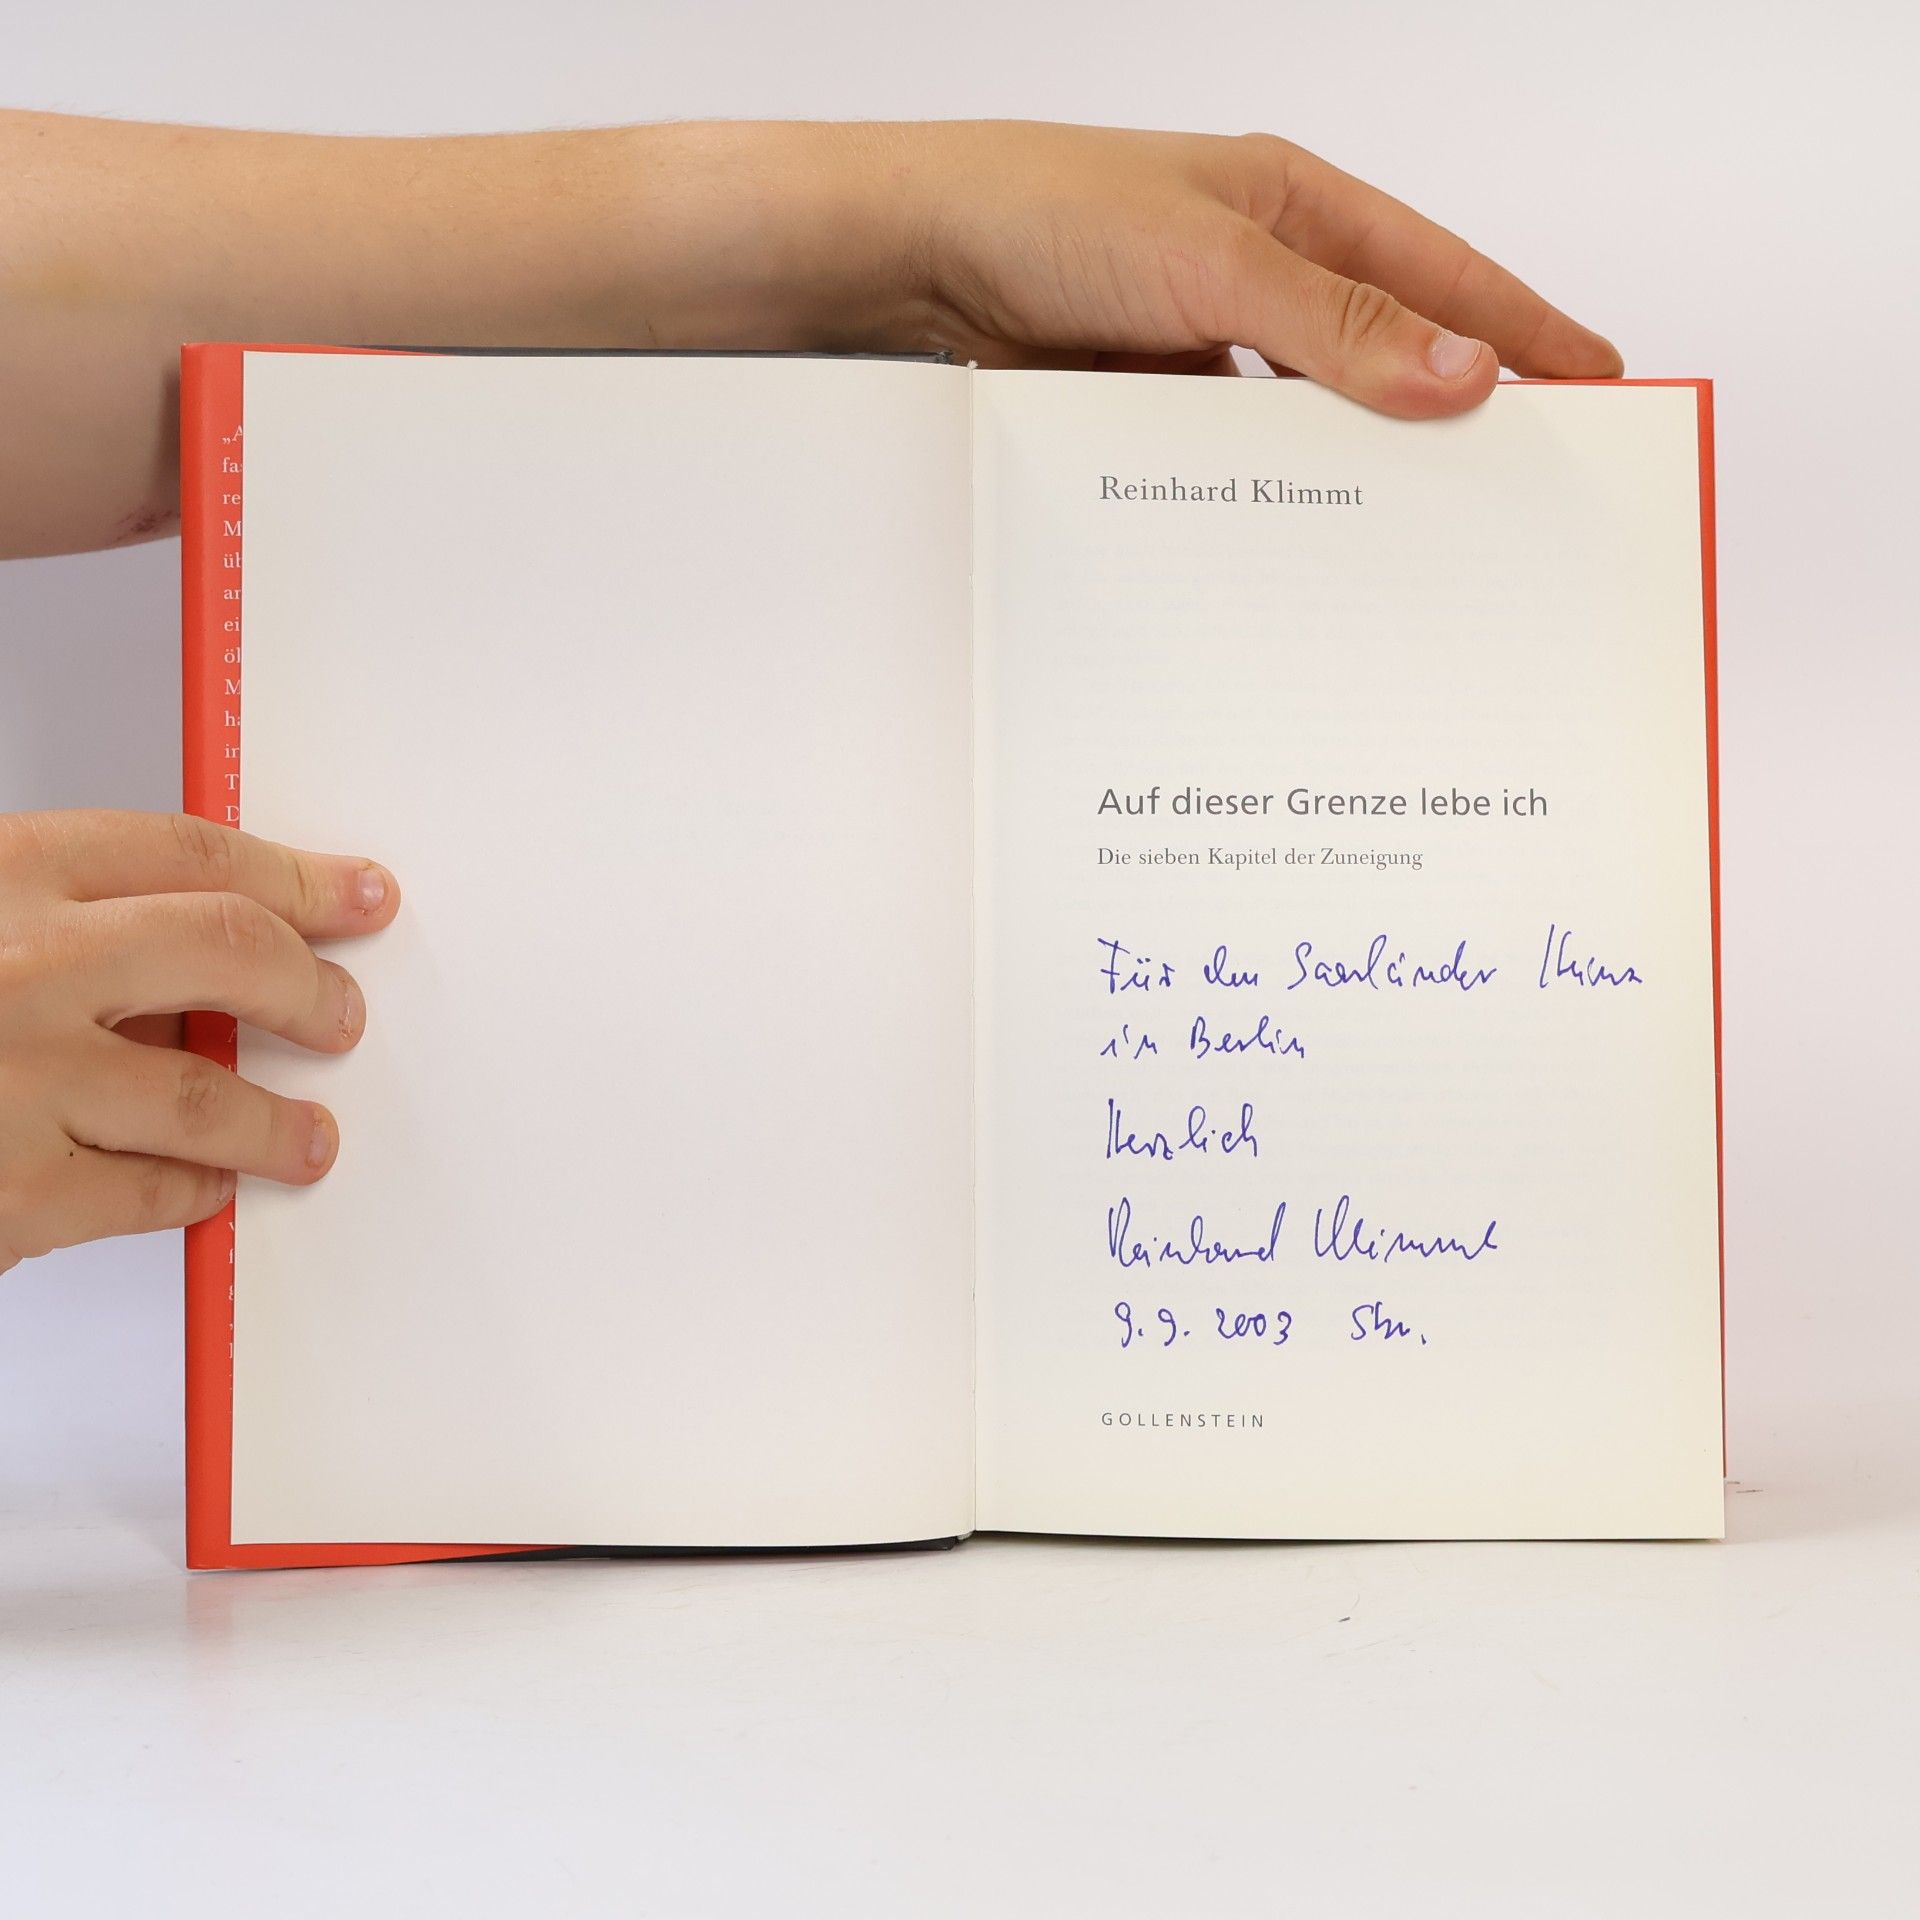 „A
fa
re
M
üb
an
ei
öl
M
ha
in
T
D
Reinhard Klimmt
Auf dieser Grenze lebe ich
Die sieben Kapitel der Zuneigung
Für den Saarländer Heinz
in Berlin
Herzlich
Reinhard Klimmt
9. 9. 2003 Sbr.
GOLLENSTEIN